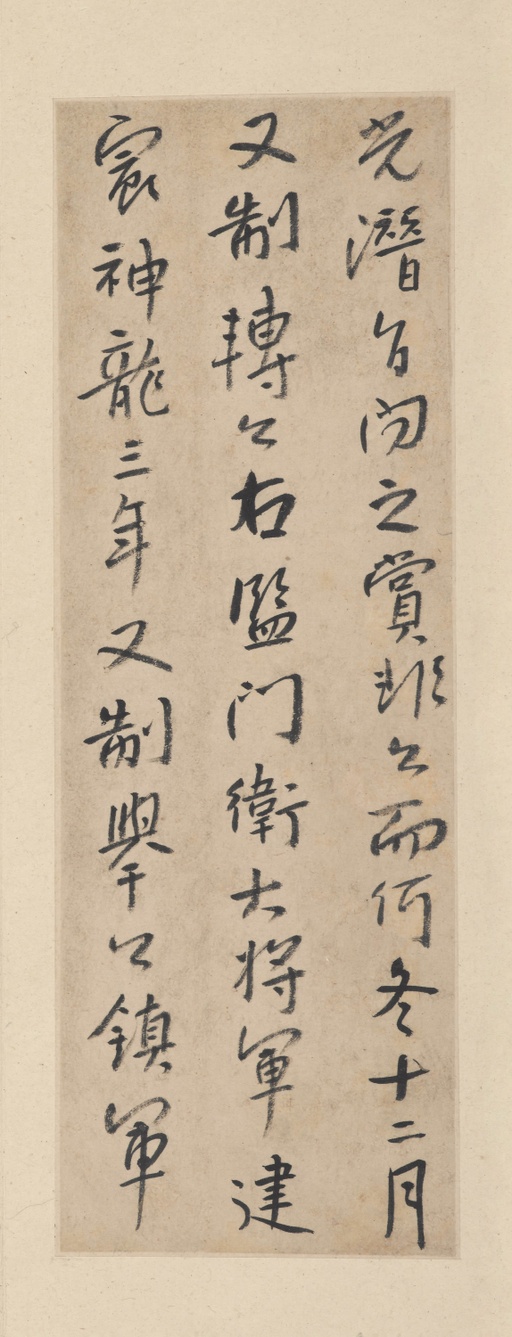 光潛有問之賞非公而何冬十二月
又制轉公右監門衛大將軍建
宸神龍三年又制舉公鎮軍